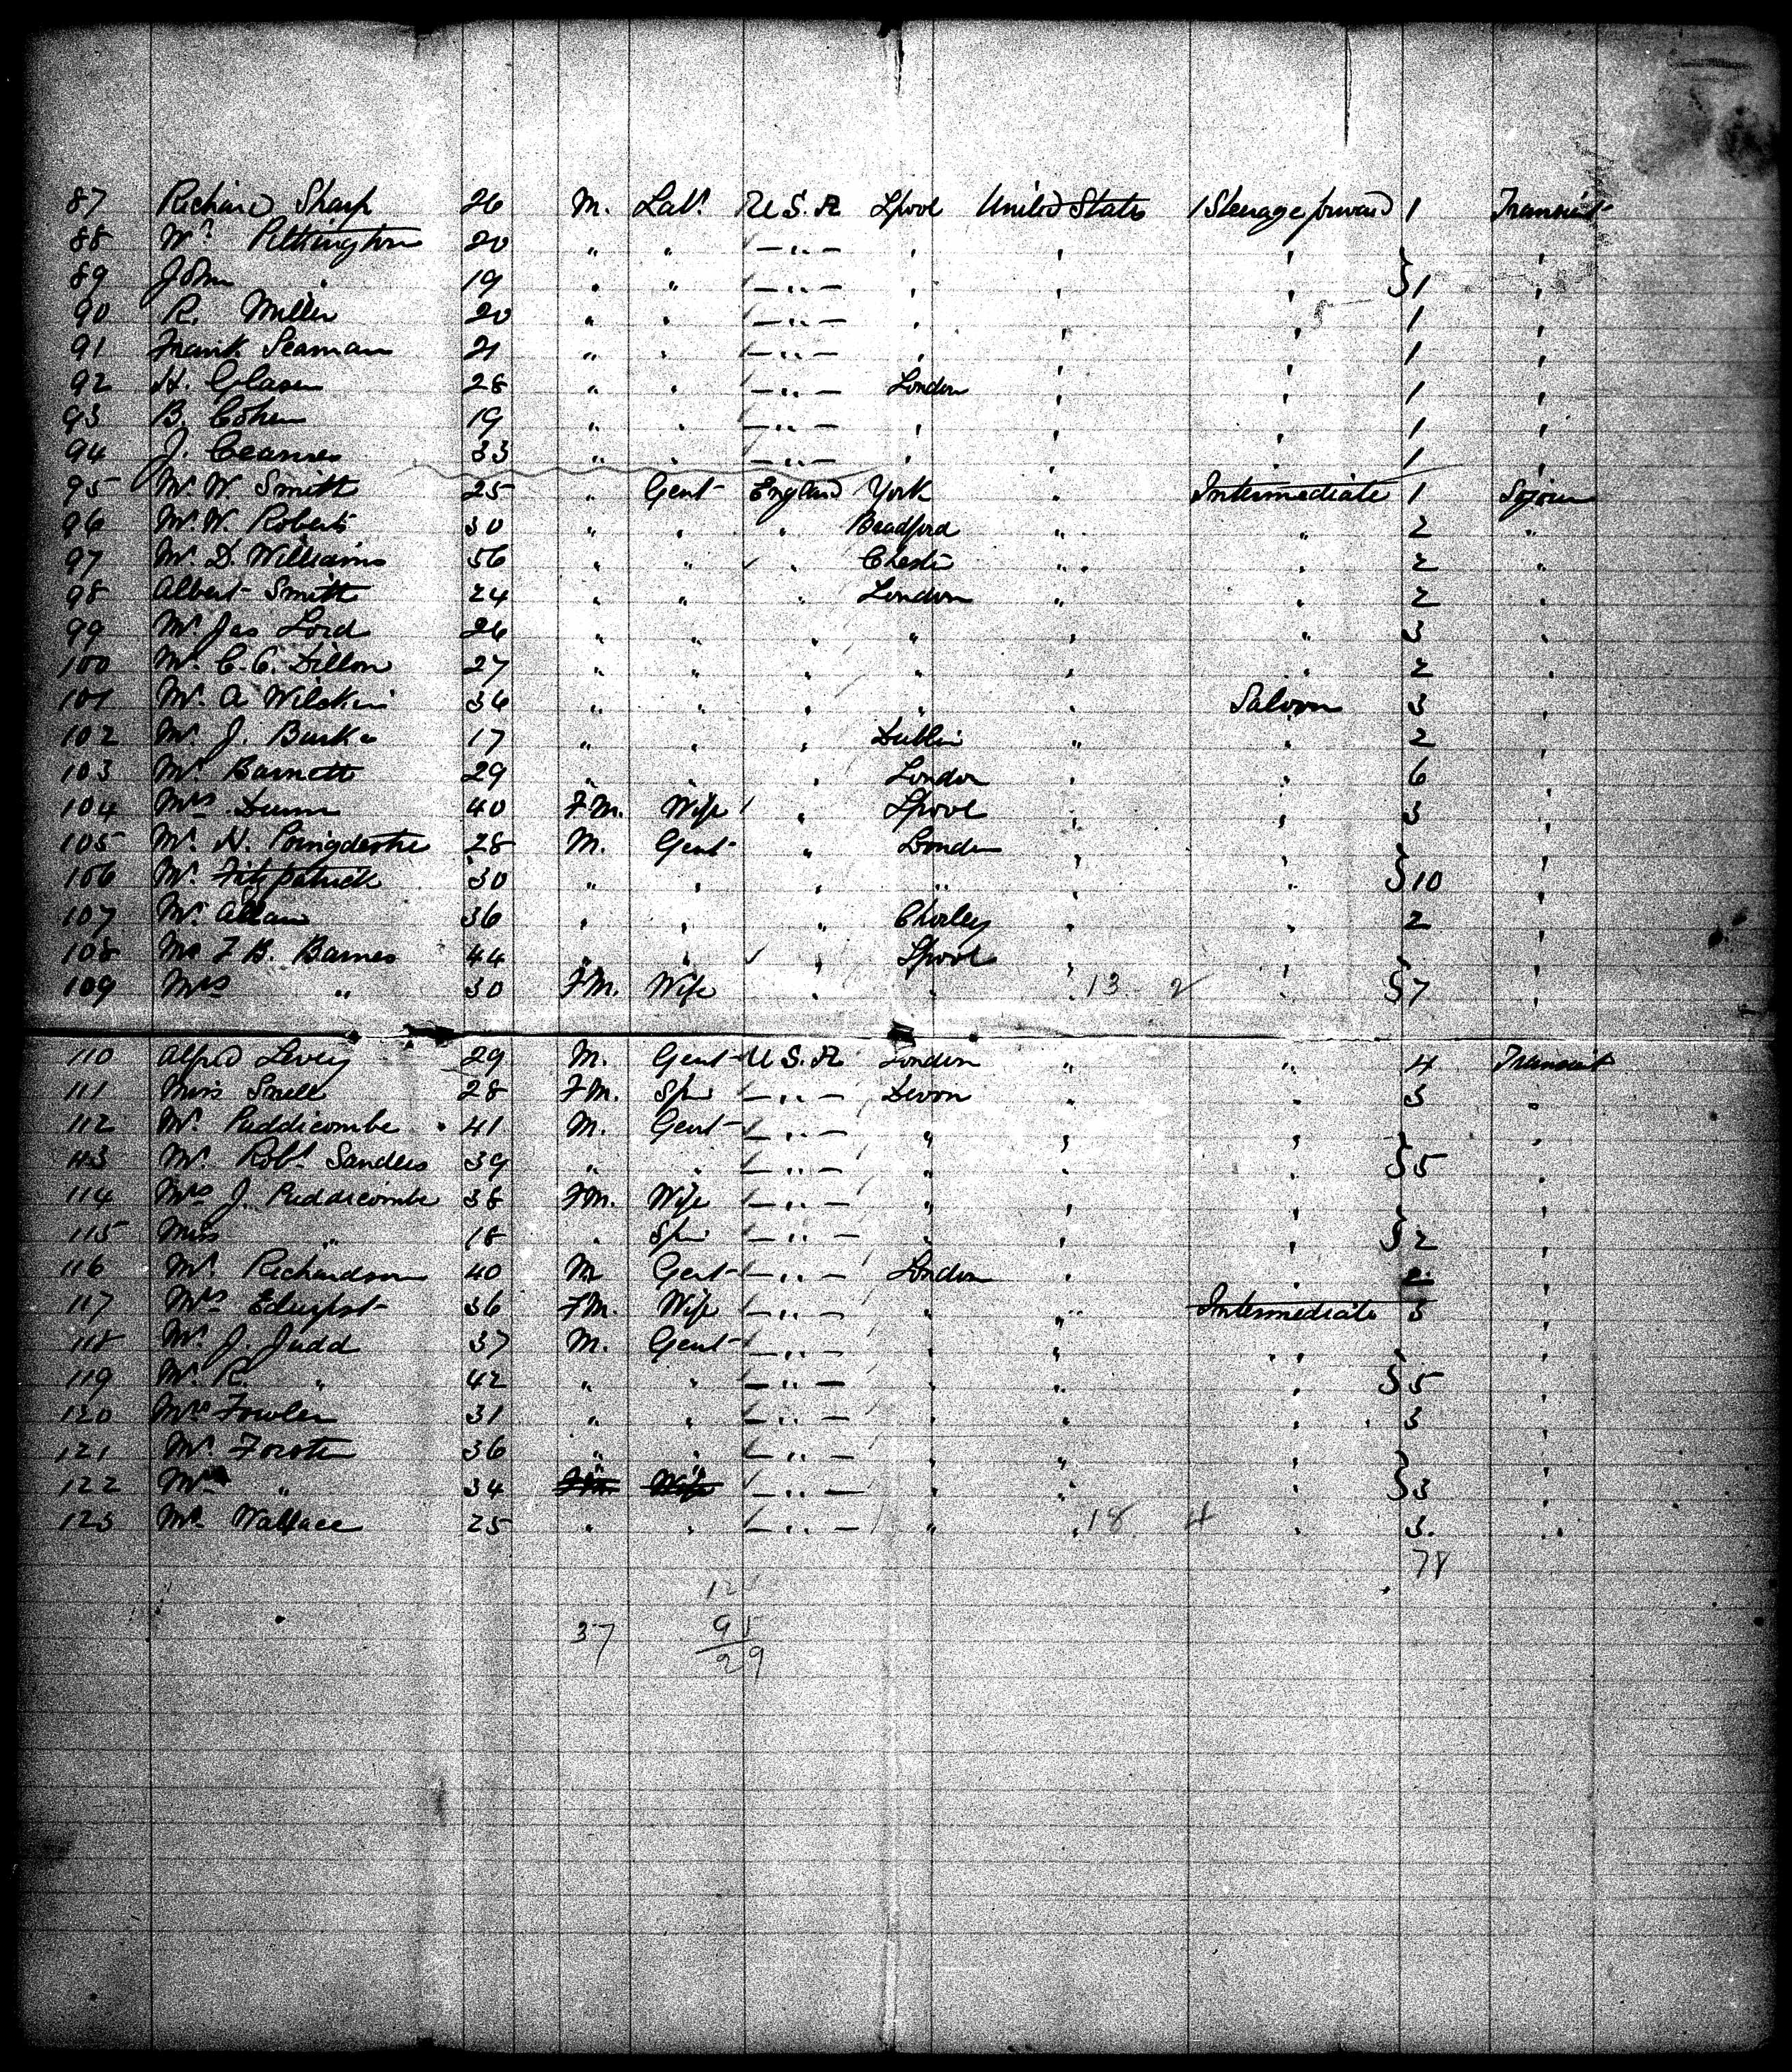 87 Richard Sharp 26 M. Labr U.S.A Lpool United States Steerage forward 1 Transit
88 Wm Pilkington 20 " " - " - " " " "
89 John " 19 " " - " - " " " } 1 "
90 R. Miller 20 " " - " - " " " 1 "
91 Frank Seaman 21 " " - " - " " " 1 "
92 H. Glaser 28 " " - " - London " " 1 "
93 B. Cohen 19 " " - " - " " " 1 "
94 J. 33 " " - " - " " " 1 "
95 Mr W. Smith 25 " Gent England York " Intermediate 1 Sojourn
96 Mr W. Roberts 30 " " " Bradford " " 2 "
97 Mr D. Williams 56 " " " Chester " " 2 "
98 Albert Smith 24 " " " London " " 2 "
99 Mr Jas Lord 26 " " " " " " 3 "
100 Mr C. C. Dillon 27 " " " " " " 2 "
101 Mr A Wilskin 36 " " " " " Saloon 3 "
102 Mr J. Burke 17 " " " Dublin " " 2 "
103 Mr Barnett 29 " " " London " " 6 "
104 Mrs Dunn 40 FM. Wife " Lpool " " 3 "
105 Mr N. Poingdestre 28 M. Gent " London " " "
106 Mr Fitzpatrick 30 " " " " " " } 10 "
107 Mr Allan 36 " " " Chorley " " 2 "
108 Mr F B. Barnes 44 " " " Lpool " " "
109 Mrs " 30 FM. Wife " " " 13 2 " } 7 "
110 Alfred Levey 29 M. Gent U.S.A London " " 4 Transit
111 Miss Smell 28 FM. Spr - " - Devon " " 3 "
112 Mr Puddicombe 41 M. Gent - " - " " " "
113 Mr Robt Sanders 39 " " - " - " " " } 5 "
114 Mrs J. Puddicombe 38 FM. Wife - " - " " " "
115 Miss " 18 " Spr - " - " " " } 2 "
116 Mr Richardson 40 M Gent - " - London " " 2 "
117 Mrs 36 FM. Wife - " - " " Intermediate 3 "
118 Mr J. Judd 37 M. Gent - " - " " " "
119 Mr R. " 42 " " - " - " " " } 5 "
120 Mr Fowler 31 " " - " - " " " 3 "
121 Mr Forster 36 " " - " - " " " "
122 Mr " 34 " " - " - " " " } 3 "
123 Mr Wallace 25 " " - " - " " 18 4 " 3. "
78
37 95
29